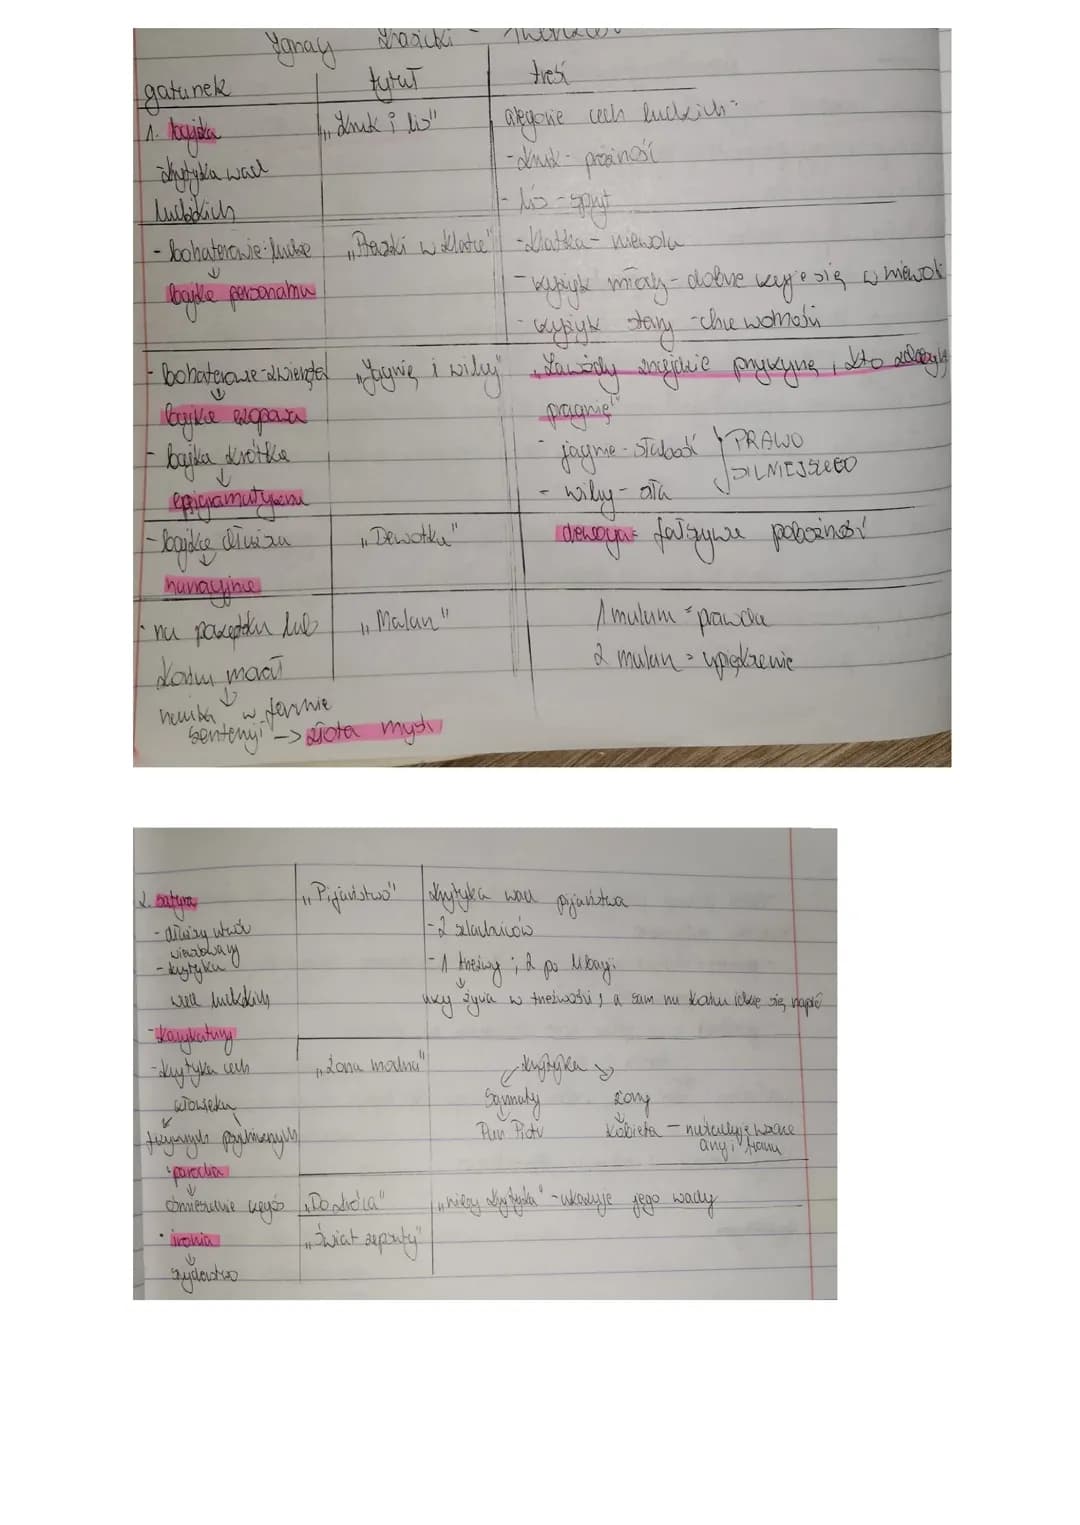 Ignacy Krasicki - Twórczość
gatunek tytuł treść
1. bajka „Kruk i lis" alegorie cech ludzkich:
krytyka wad - kruk - próżność
ludzkich - lis - spryt
- bohaterowie: ludzie „Ptaszki w klatce" - klatka - niewola
bajka personalna - czyżyk młody - dobrze czuje się w niewoli
- czyżyk stary - chce wolności
- bohaterowie - zwierzęta „Jagnię i wilcy" „Zawżdy znajdzie przyczynę, kto zdobyczy
bajka ezopowa pragnie"
- bajka krótka - jagnię - słabość PRAWO
epigramatyczna - wilcy - siła SILNIEJSZEGO
- bajka dłuższa „Dewotka" dewocja = fałszywa pobożność
narracyjna
- na początku lub „Malarze" 1 malarz = prawda
końcu morał 2 malarz = upiększenie
nauka w formie
sentencji -> złota myśl
2. satyra „Pijaństwo" krytyka wad pijaństwa
- dłuższy utwór - 2 szlachciców
wierszowany - 1 trzeźwy; 2 po libacji
- krytyka uczy życia w trzeźwości, a sam na końcu idzie się napić
wad ludzkich
- karykatury
- krytyka cech „Żona modna" krytyka
człowieka Sarmaty żony
fizycznych psychicznych Pan Piotr kobieta - naśladuje wzorce
ang i franc
- parodia
ośmieszanie kogoś „Do króla" „niby krytyka" - ukazuje jego wady
- ironia „Świat zepsuty"
szyderstwo